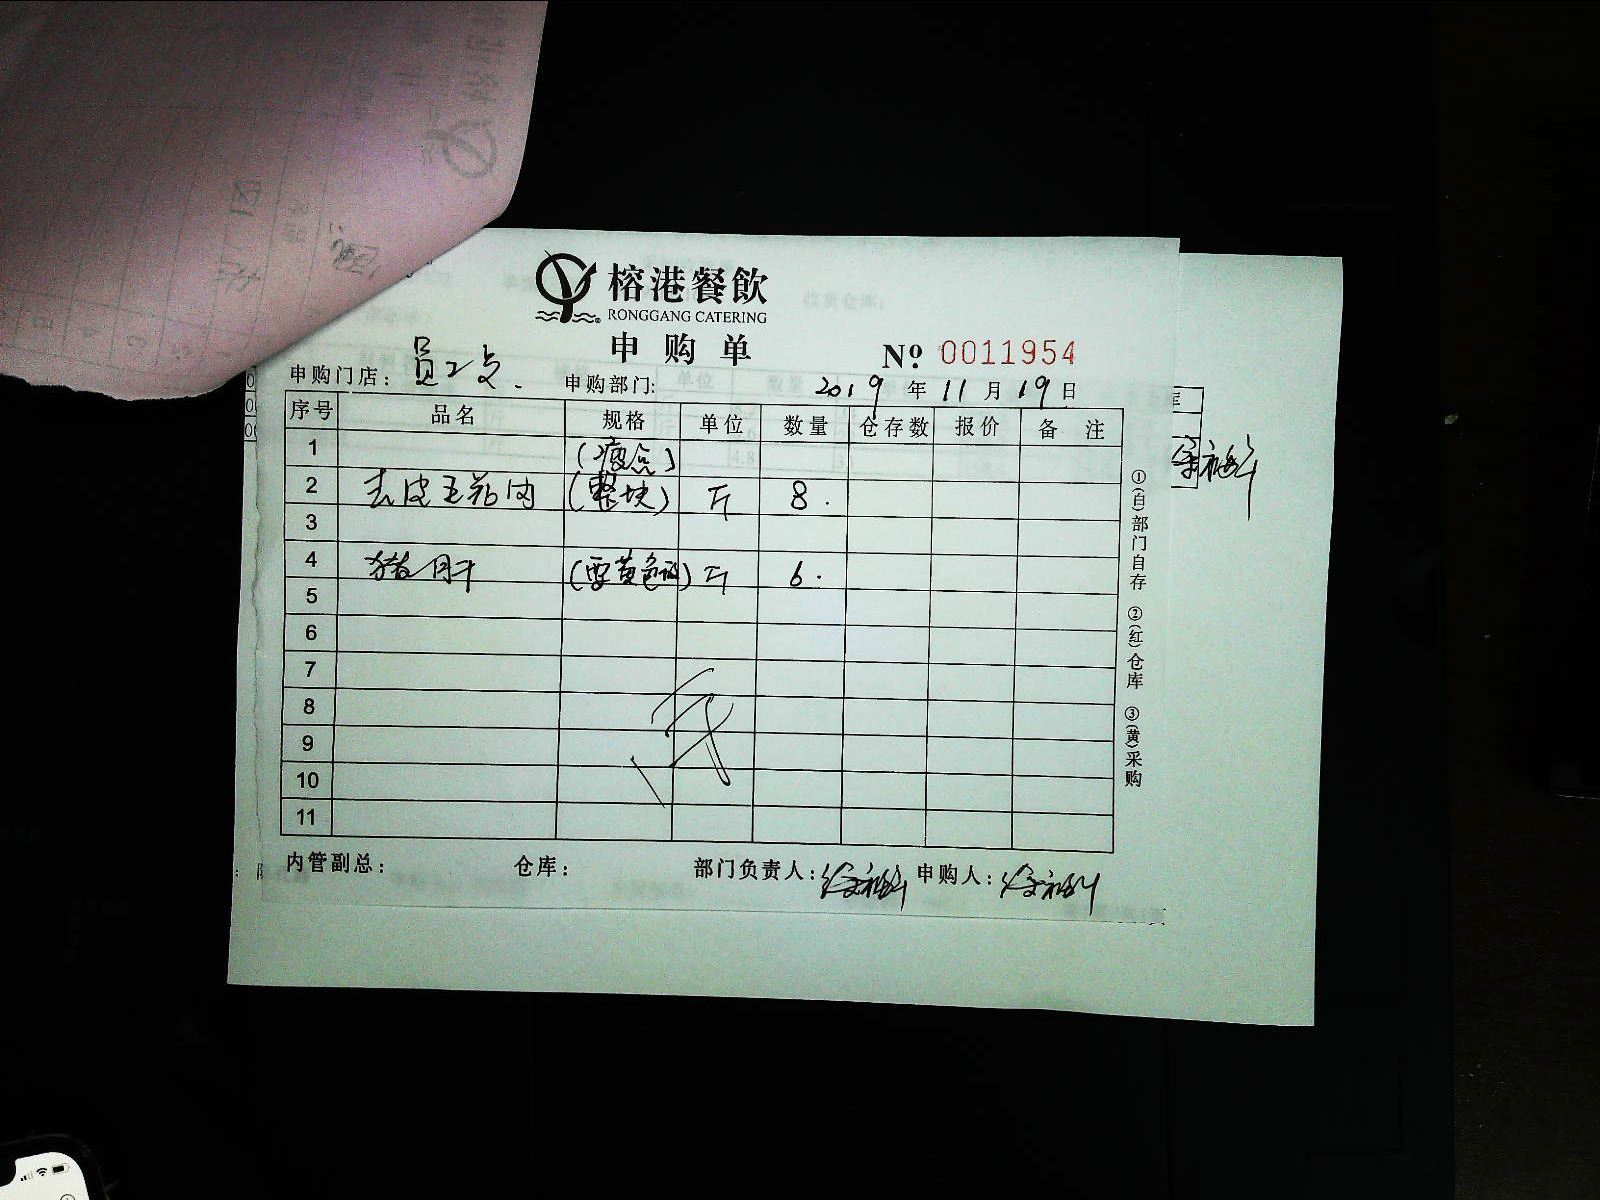 榕港餐飲
RONGGANG CATERING
申购单
№ 0011954
申购门店：员工 申购部门: 2019 年 11 月 19 日
序号 品名 规格 单位 数量 仓存数 报价 备 注
1 (瘦点)
2 去皮五花肉 (整块) 斤 8.
3
4 猪肝 (要黄色的) 斤 6.
5
6
7
8
9
10
11
①(白)部门自存 ②(红)仓库 ③(黄)采购
内管副总： 仓库： 部门负责人： 申购人：